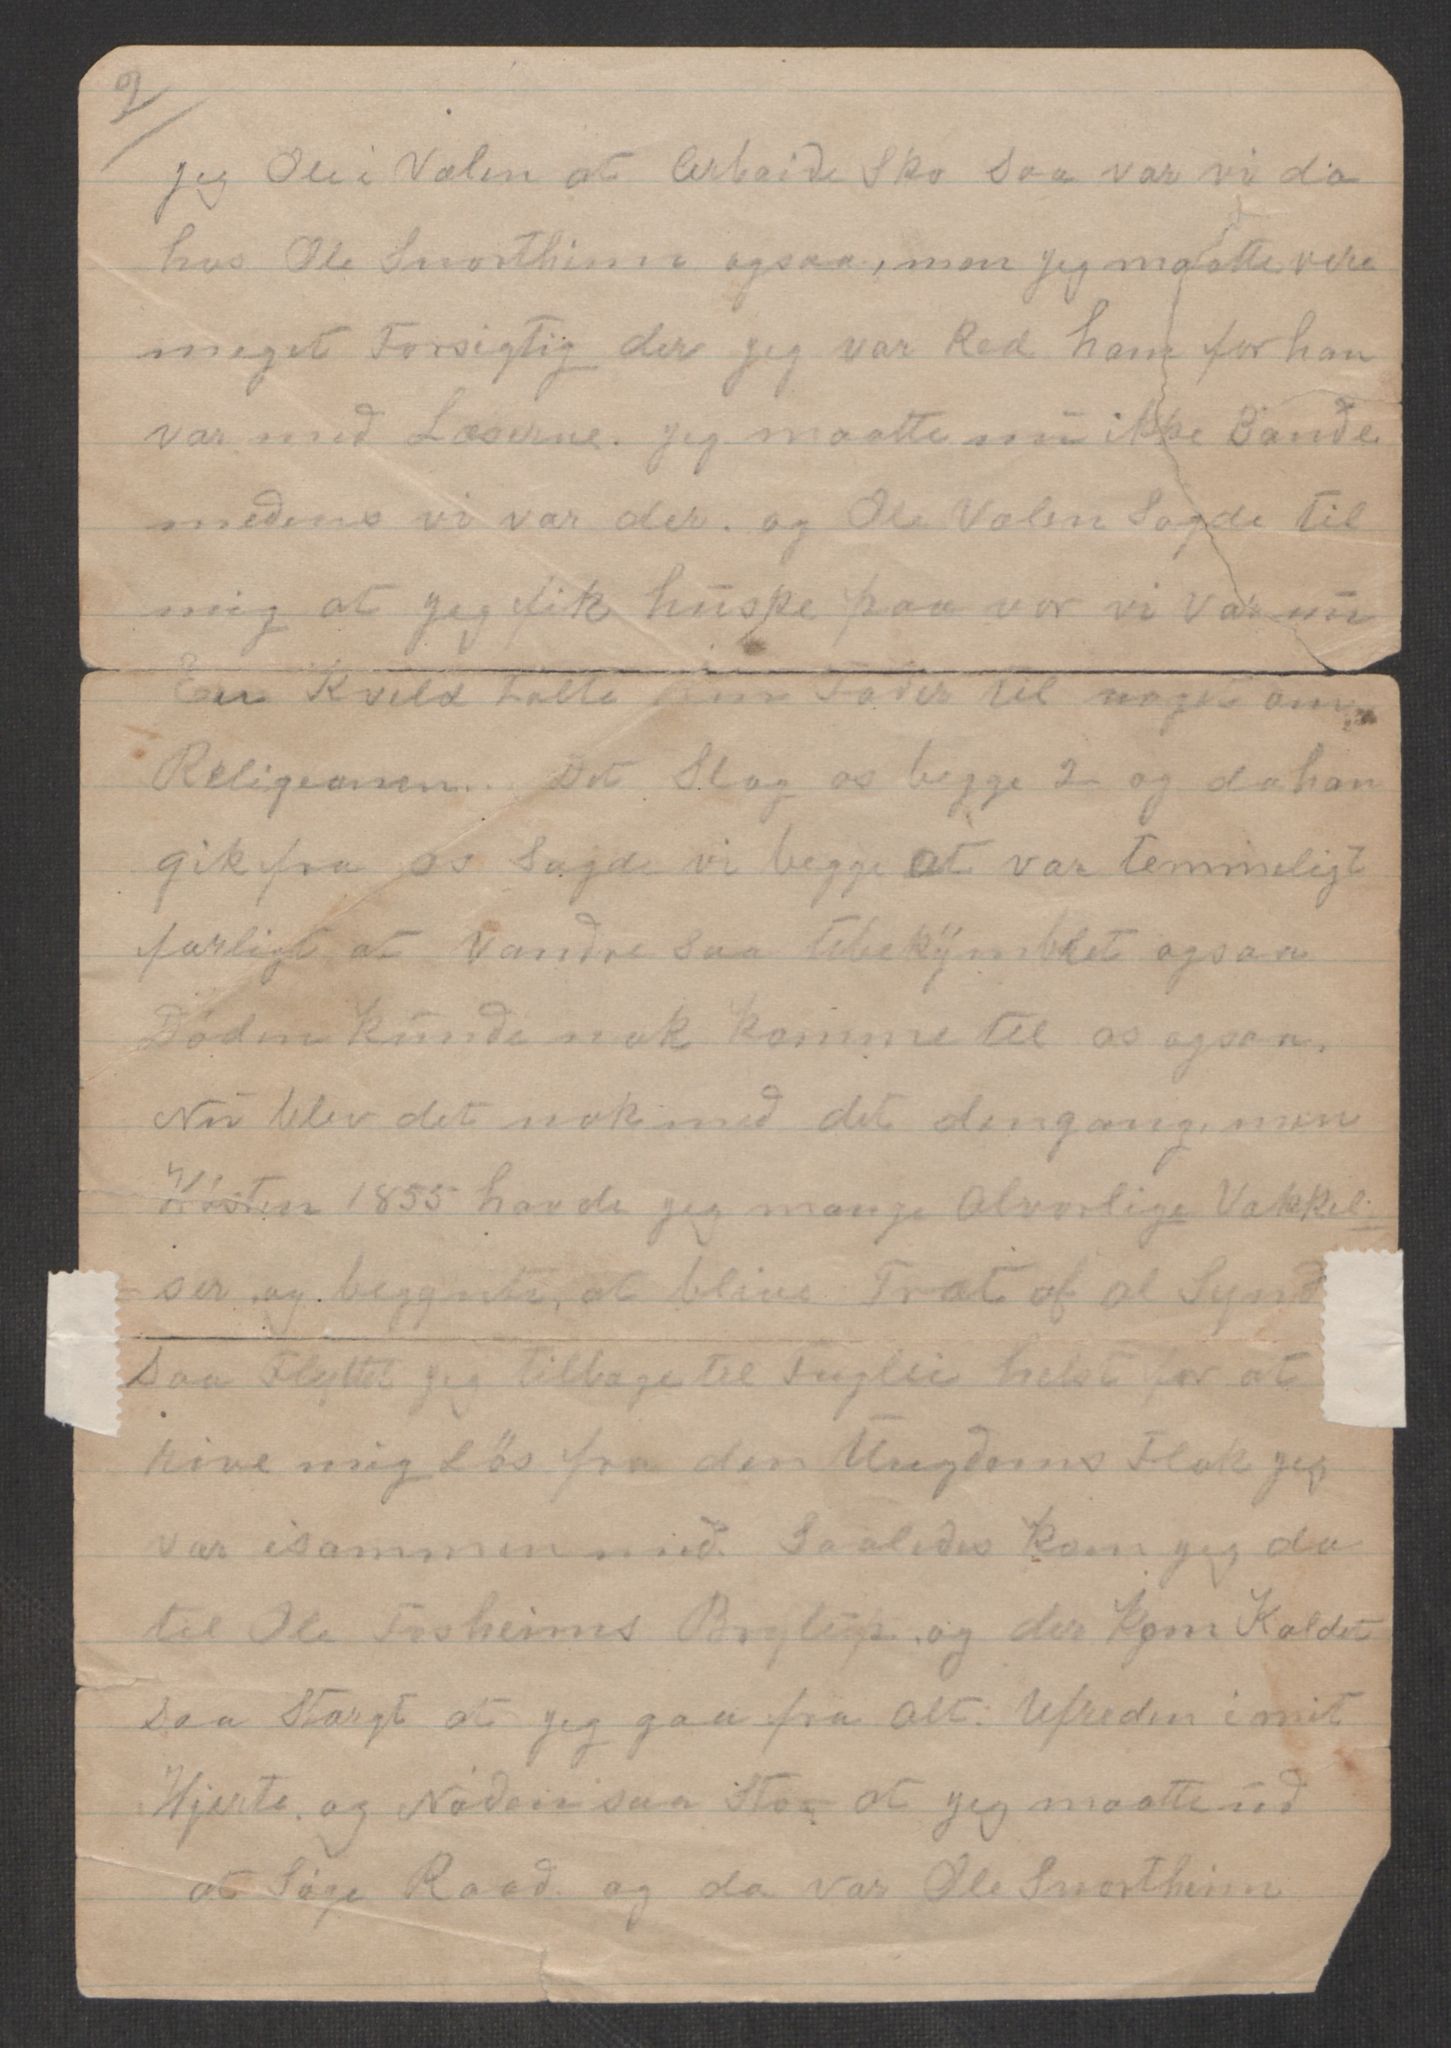 2/
jeg Ole i Vælen at Arbeide Sko Saa var vi da
hos Ole Snortheim ogsaa, men jeg maatte vere
meget Forsigtig der jeg var Red ham for han
var med Læserne. jeg maatte nu ikke Bande
medens vi var der. og Ole Vælen Sagde til
mig at jeg fik huske paa vor vi var nu
Een Kveld talte Fader til noget om
Religeonen. Det Slog os begge 2 og da han
gik fra os Sagde vi begge at var temmeligt
farligt at Vandre saa ogsaa
Døden kunde nok komme til os ogsaa.
Nu blev det nok med det dengang, men
Høsten 1855 havde jeg mange Alvorlige Vækkel-
ser og begynte, at blive Træt af al Synd
Saa Flyttet jeg tilbage til Fuglei helst for at
rive mig Løs fra den Ungdoms Flok jeg
var isammen med. Saaledes kom jeg da
til Ole Forsheims Brylup og der kom Kaldet
Saa Stærgt at jeg gaa fra Alt. Ufreden i mit
Hjerte. og Nøden saa Stor at jeg maatte ud
at Søge Raad. og da var Ole Snortheim